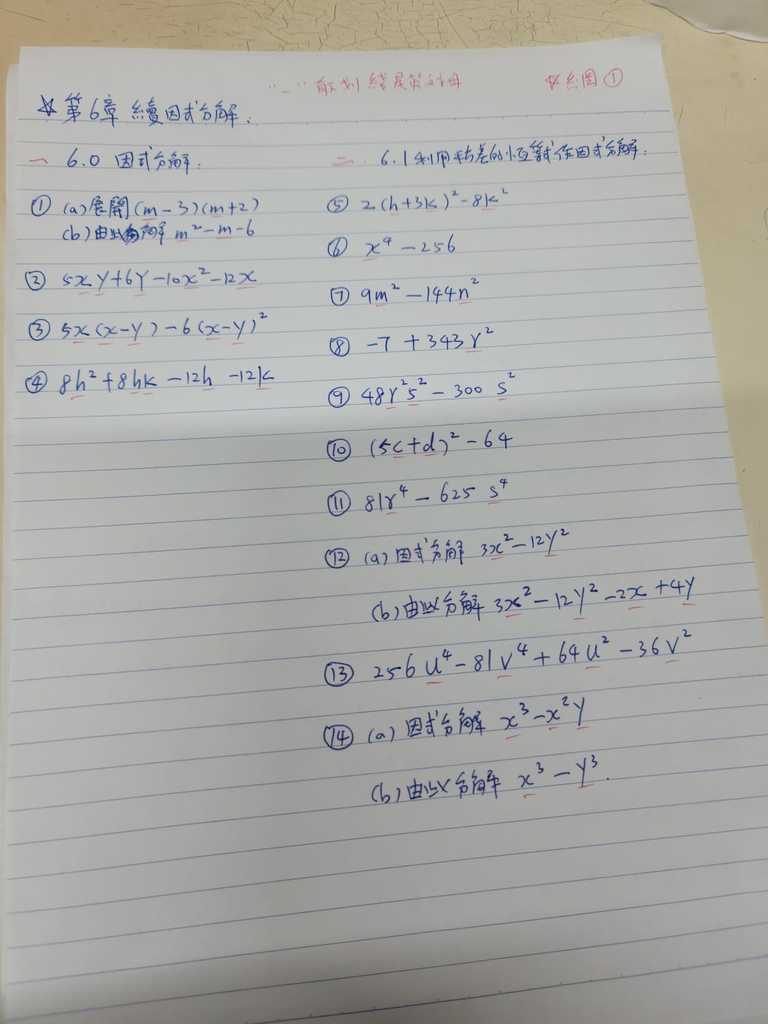 ☆ 第6章 續因式分解.
一 6.0 因式分解:
① (a) 展開 (m-3)(m+2)
(b) 由此分解 m²-m-6
② 5xy+6y-10x²-12x
③ 5x(x-y)-6(x-y)²
④ 8h²+8hk-12h-12k
二 6.1 利用平方差的恒等式作因式分解:
⑤ 2(h+3k)²-8k²
⑥ x⁴-256
⑦ 9m²-144n²
⑧ -7+343r²
⑨ 48r²s²-300s²
⑩ (5c+d)²-64
⑪ 81r⁴-625s⁴
⑫ (a) 因式分解 3x²-12y²
(b) 由此分解 3x²-12y²-2x+4y
⑬ 256u⁴-81v⁴+64u²-36v²
⑭ (a) 因式分解 x³-x²y
(b) 由此分解 x³-y³.